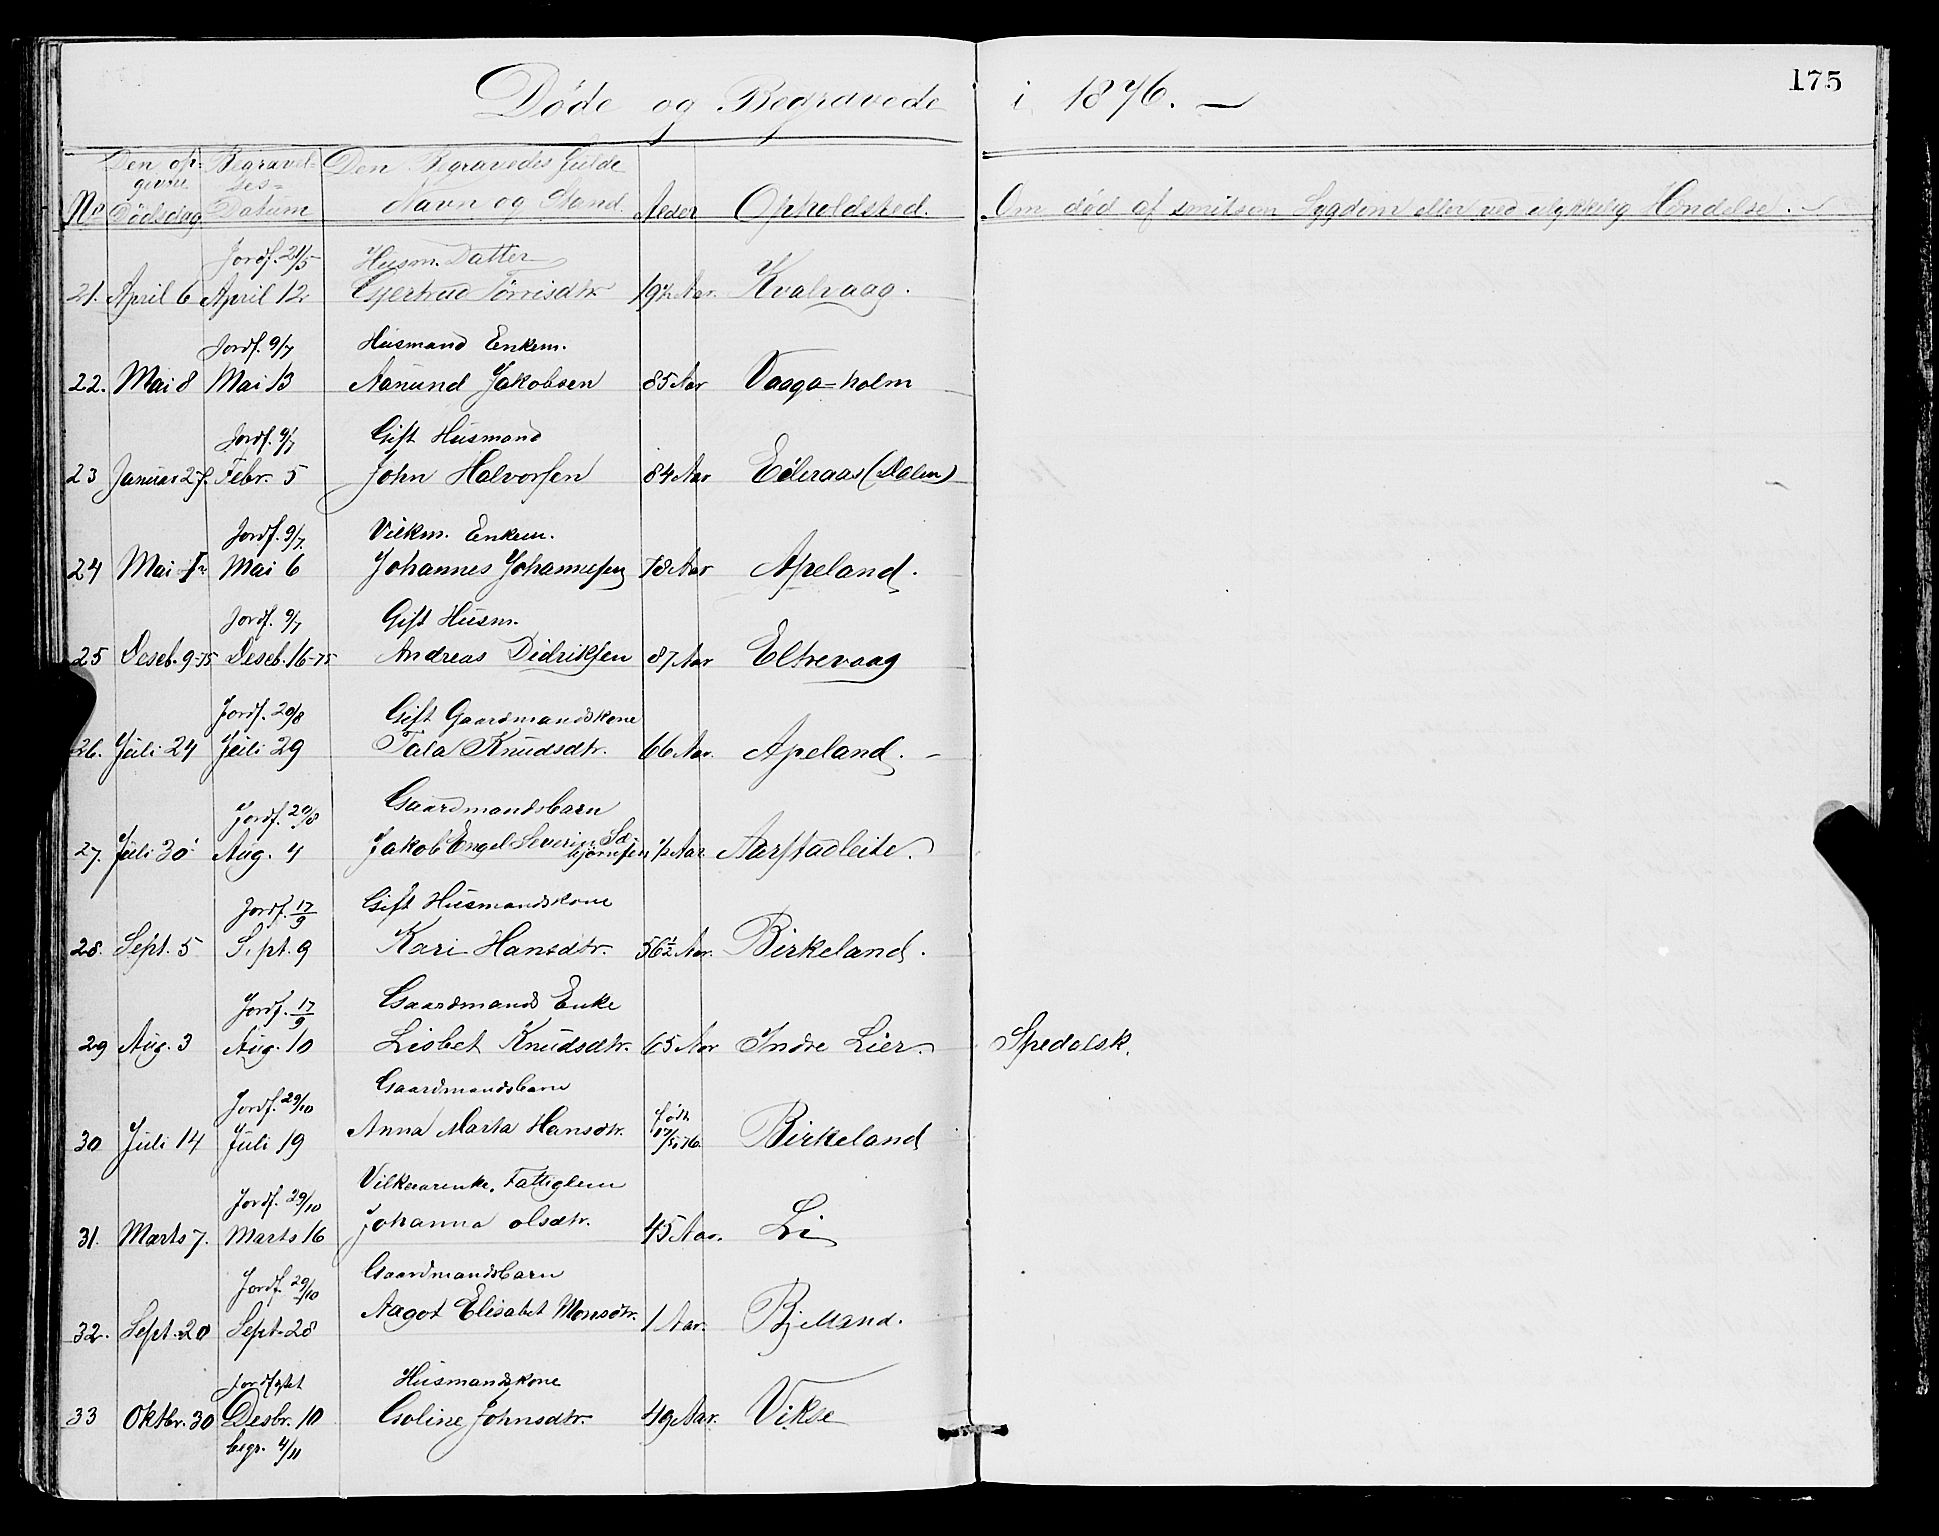 Døde og Begravede i 1876. —
175
No Den opgivne Dødsdag Begravelses= Datum Den Begravedes fulde Navn og Stand Alder Opholdsted. Om død af smitsom Sygdom eller ved ulykkelig Hændelse. —
Jordf. 21/5 Husm. Datter
21. April 6 April 12 Gjertrud Tørrisdtr. 19½ Aar. Kvalvaag.
Jordf. 9/7 Husmand Enkem.
22. Mai 8 Mai 13 Aanund Jakobsen 85 Aar Vaaga=holm
Jordf. 9/7 Gift Husmand
23 Januar 27 Febr. 5 John Halvorsen 84 Aar (Dalen)
Jordf. 9/7 Vilkm. Enkem.
24 Mai 1 Mai 6 Johannes Johannesen 78 Aar Apeland.
Jordf. 9/7 Gift Husm.
25 Deseb. 9-75 Deseb. 16-75 Andreas Didriksen 87 Aar Eltrevaag
Jordf. 20/8 Gift Gaardmandskone
26. Juli 24 Juli 29 Tala Knudsdtr. 66 Aar. Apeland. —
Jordf. 20/8 Gaardmandsbarn
27. Juli 30 Aug. 4 Jakob Engel Severin Sæbjørnsen ½ Aar Aarstadleite.
Jordf. 17/9 Gift Husmandskone
28. Sept. 5 Sept. 9 Kari Hansdtr. 56½ Aar. Birkeland.
Jordf. 17/9 Gaardmands Enke
29 Aug. 3 Aug. 10 Lisbet Knudsdtr. 65 Aar Indre Lier. Spedalsk.
Jordf. 29/10 Gaardmandsbarn
30 Juli 14 Juli 19 Anna Marta Hansdtr. født 17/5 76. Birkeland
Jordf. 29/10 Vilkaarenke. Fattiglem
31. Marts 7. Marts 16 Johanna Olsdtr. 45 Aar. Li
Jordf. 29/10 Gaardmandsbarn
32. Sept. 20 Sept. 28 Aagot Elisabet Monsdtr. 1 Aar. Bjelland.
Jordfæstet Husmandskone
33 Oktbr. 30 Desbr. 10 Goline Johnsdtr. 49 Aar. Vikse
begr. 4/11